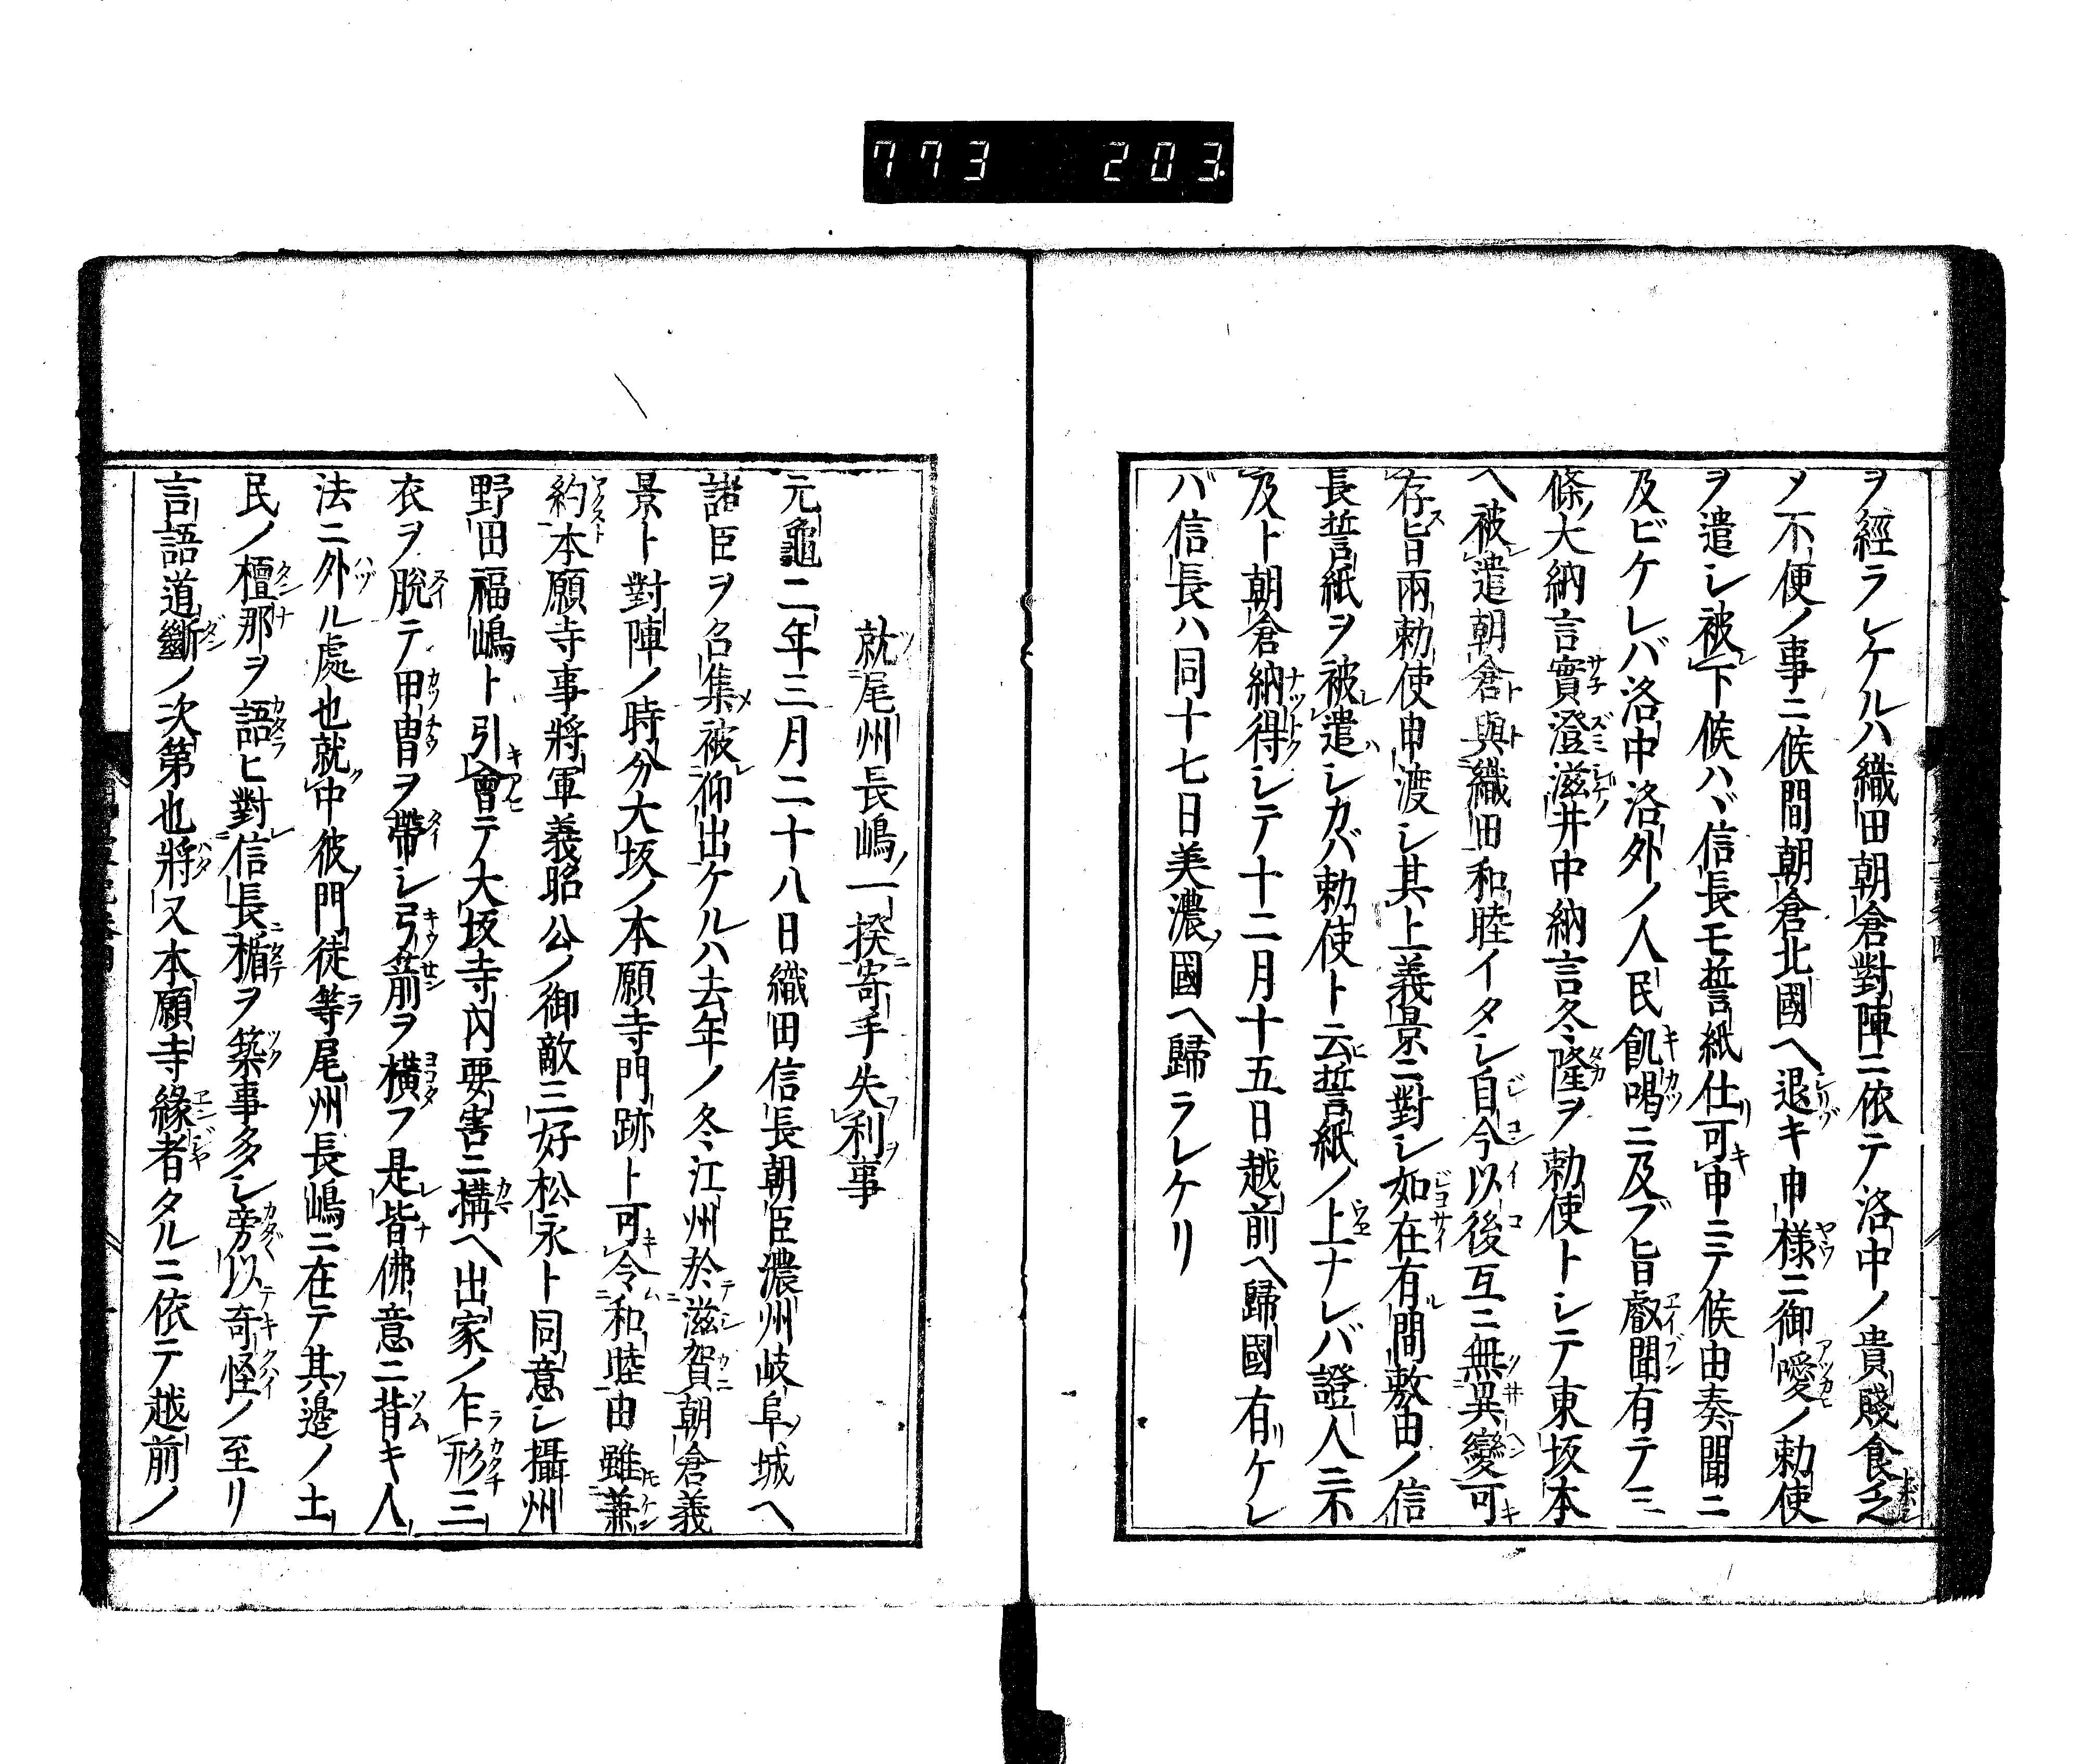 773 203
ヲ經ラレケルハ織田朝倉對陣ニ依テ洛中ノ貴賤食乏
メ不便ノ事ニ候間朝倉北國ヘ退キ申様ニ御噯ノ勅使
ヲ遣シ被下候ハヾ信長モ誓紙仕可申ニテノ候由奏聞ニ
及ビケレバ洛中洛外ノ人民飢喝ニ及ブ旨叡聞有テ三
條大納言實澄滋井中納言冬隆ヲ勅使トシテ東坂本
ヘ被遣朝倉與織田和睦イタシ自今以後互ニ無異變可
存旨兩勅使申渡シ其上義景ニ對シ如在有間敷由ノ信
長誓紙ヲ被遣シカバ勅使ト云誓紙ノ上ナレバ證人ニ不
及ト朝倉納得シテ十二月十五日越前ヘ歸國有ケレ
バ信長ハ同十七日美濃國ヘ歸ラレケリ
就尾州長嶋一揆寄手失利事
元龜二年三月二十八日織田信長朝臣濃州岐阜城ヘ
諸臣ヲ召集被仰出ケルハ去年ノ冬江州於滋賀朝倉義
景ト對陣ノ時分大坂ノ本願寺門跡ト可令和睦由雖兼
約本願寺事將軍義昭公ノ御敵三好松永ト同意シ攝州
野田福嶋ト引會テ大坂寺内要害ニ搆ヘ出家ノ乍形三
衣ヲ脱テ甲冑ヲ帶シ弓箭ヲ横フ是皆佛意ニ背キ人
法ニ外ル處也就中彼門徒等尾州長嶋ニ在テ其邊ノ土
民ノ檀那ヲ語ヒ對信長楯ヲ築事多シ旁以奇怪ノ至リ
言語道斷ノ次第也將又本願寺緣者タルニ依テ越前ノ